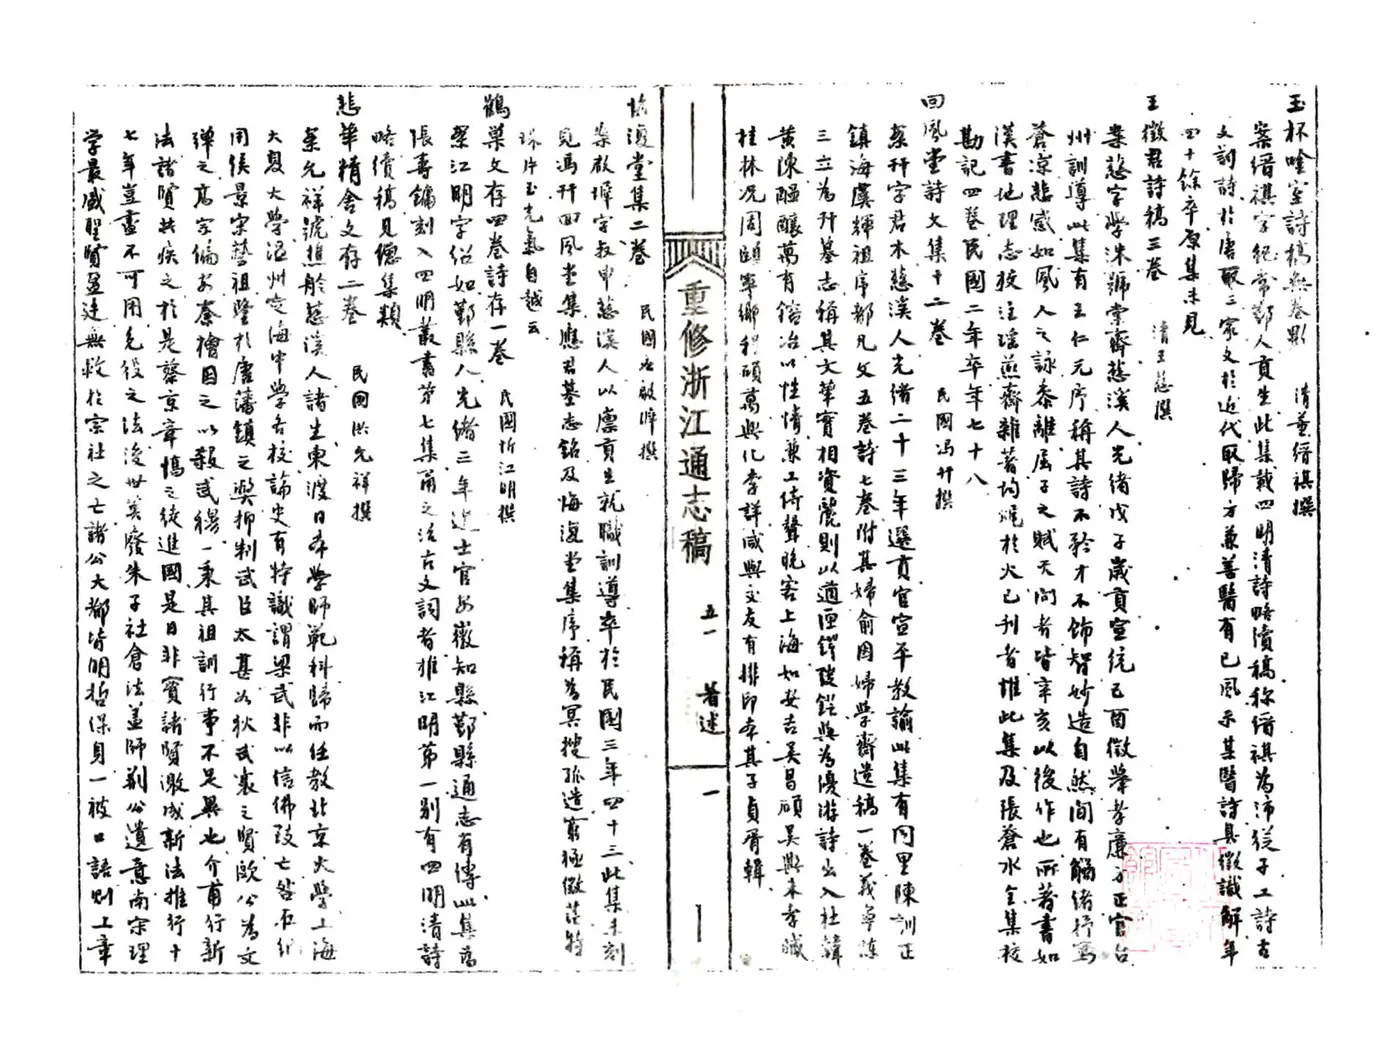 玉杯唫室詩稿無卷數　清董縉祺撰
案縉祺字紀常鄞人貢生此集載四明清詩略續稿稱縉祺為沛從子工詩古
文詞詩於唐取三家文於近代取歸方兼善醫有已風示某醫詩具徵識解年
四十餘卒原集未見
王徵君詩稿三卷　清王慈撰
案慈字學洙號棠齋慈溪人光緒戊子歲貢宣統己酉徵舉孝廉方正官台
州訓導此集有王仁元序稱其詩不矜才不飾智妙造自然間有觸緒抒寫
蒼涼悲感如風人之詠黍離屈子之賦天問者皆辛亥以後作也所著書如
漢書地理志校注瑶煎齋雜著均燬於火已刊者惟此集及張蒼水全集校
勘記四卷民國二年卒年七十八
回風堂詩文集十二卷　民國馮幵撰
案幵字君木慈溪人光緒二十三年選貢官宣平教諭此集有同里陳訓正
鎮海虞輝祖序鄞凡文五卷詩七卷附其婦俞因婦學齋遺稿一卷義寧陳
三立為幵墓志稱其文華實相資麗則以適匣鍔陵鏗與為優游詩出入杜韓
黃陳醞釀萬有鎔冶以性情兼工倚聲晚客上海如安吉吳昌碩吳興朱孝臧
桂林況周頤寧鄉程頌萬興化李詳咸與交友有排印本其子貞胥輯
重修浙江通志稿　五一　著述　一
悔復堂集二卷　民國應啟墀撰
案啟墀字叔申慈溪人以廩貢生就職訓導卒於民國三年四十三此集未刻
見馮幵回風堂集應君墓志銘及悔復堂集序稱為冥搜孤造窮極微茫特
珠片玉光氣自越云
鶴巢文存四卷詩存一卷　民國忻江明撰
案江明字紹如鄞縣人光緒三年進士官安徽知縣鄞縣通志有傳此集為
張壽鏞刻入四明叢書第七集甬之治古文詞者推江明第一別有四明清詩
略續稿見總集類
悲華精舍文存二卷　民國洪允祥撰
案允祥號樵舲慈溪人諸生東渡日本學師範科歸而任教北京大學上海
大夏大學溫州定海中學各校論史有特識謂梁武非以信佛致亡咎在網
同侯景宋藝祖鑒於唐藩鎮之禍抑制武臣太甚以狄武襄之賢歐公為文
彈之高宗偏安秦檜因之以殺武穆一秉其祖訓行事不足異也介甫行新
法諸賢共疾之於是蔡京章惇之徒進國是日非實諸賢激成新法推行十
七年豈盡不可用免役之法後世莫廢朱子社倉法蓋師荊公遺意南宋理
學最盛聖賢盈廷無救於宗社之亡諸公大都皆明哲保身一被口語則上章